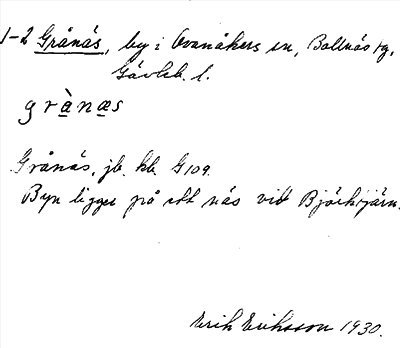 1-2 Grånäs, by i Ovanåkers sn, Bollnäs tg,
Gävleb. l.
grànæs
Grånäs, jb. kb. G109.
Byn ligger på ett näs vid Björktjärn.
Erik Eriksson 1930.